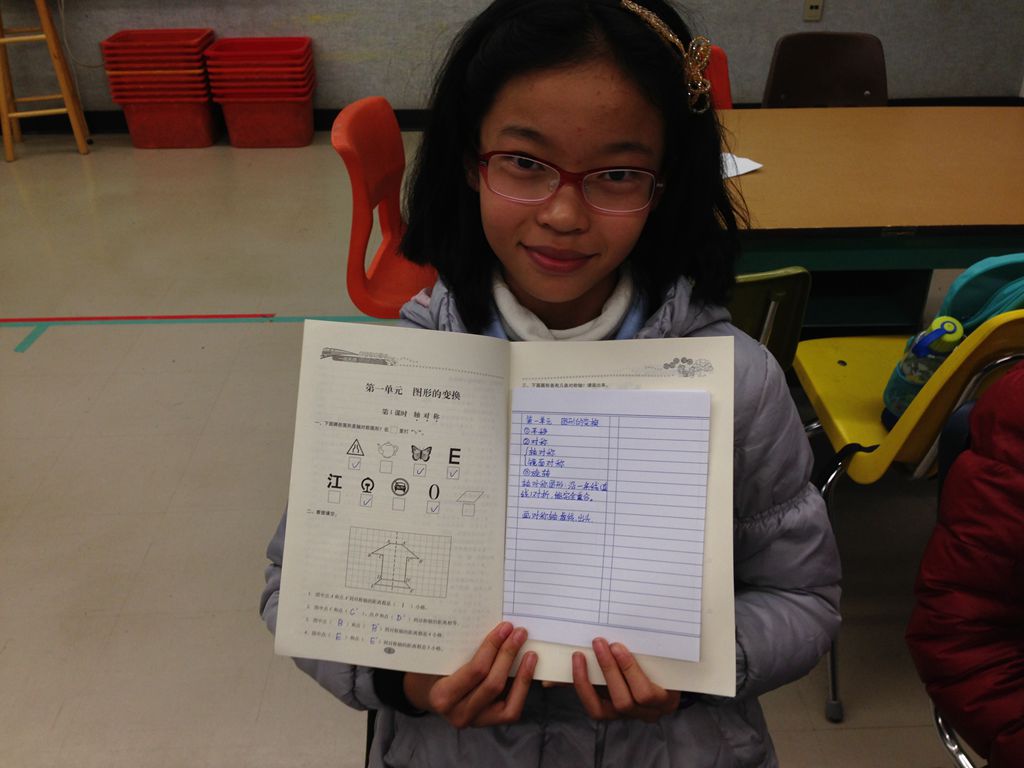 第一单元 图形的变换
第1课时 轴对称
一、下面哪些图形是轴对称图形？在□里打“√”。
E
江
0
二、看图填空。
1. 图中点A和点A'到对称轴的距离都是（ 1 ）小格。
2. 图中点C和点（ C' ），点D和点（ D' ）到对称轴的距离相等。
3. 图中点（ B ）和点（ B' ）到对称轴的距离都是4小格。
4. 图中点（ E ）和点（ E' ）到对称轴的距离都是3小格。
三、下面图形各有几条对称轴？请画出来。
第一单元 图形的变换
①平移
②对称
轴对称
镜面对称
③旋转
轴对称图形：沿一条线（直
线）对折，能完全重合。
画对称轴：虚线，出头